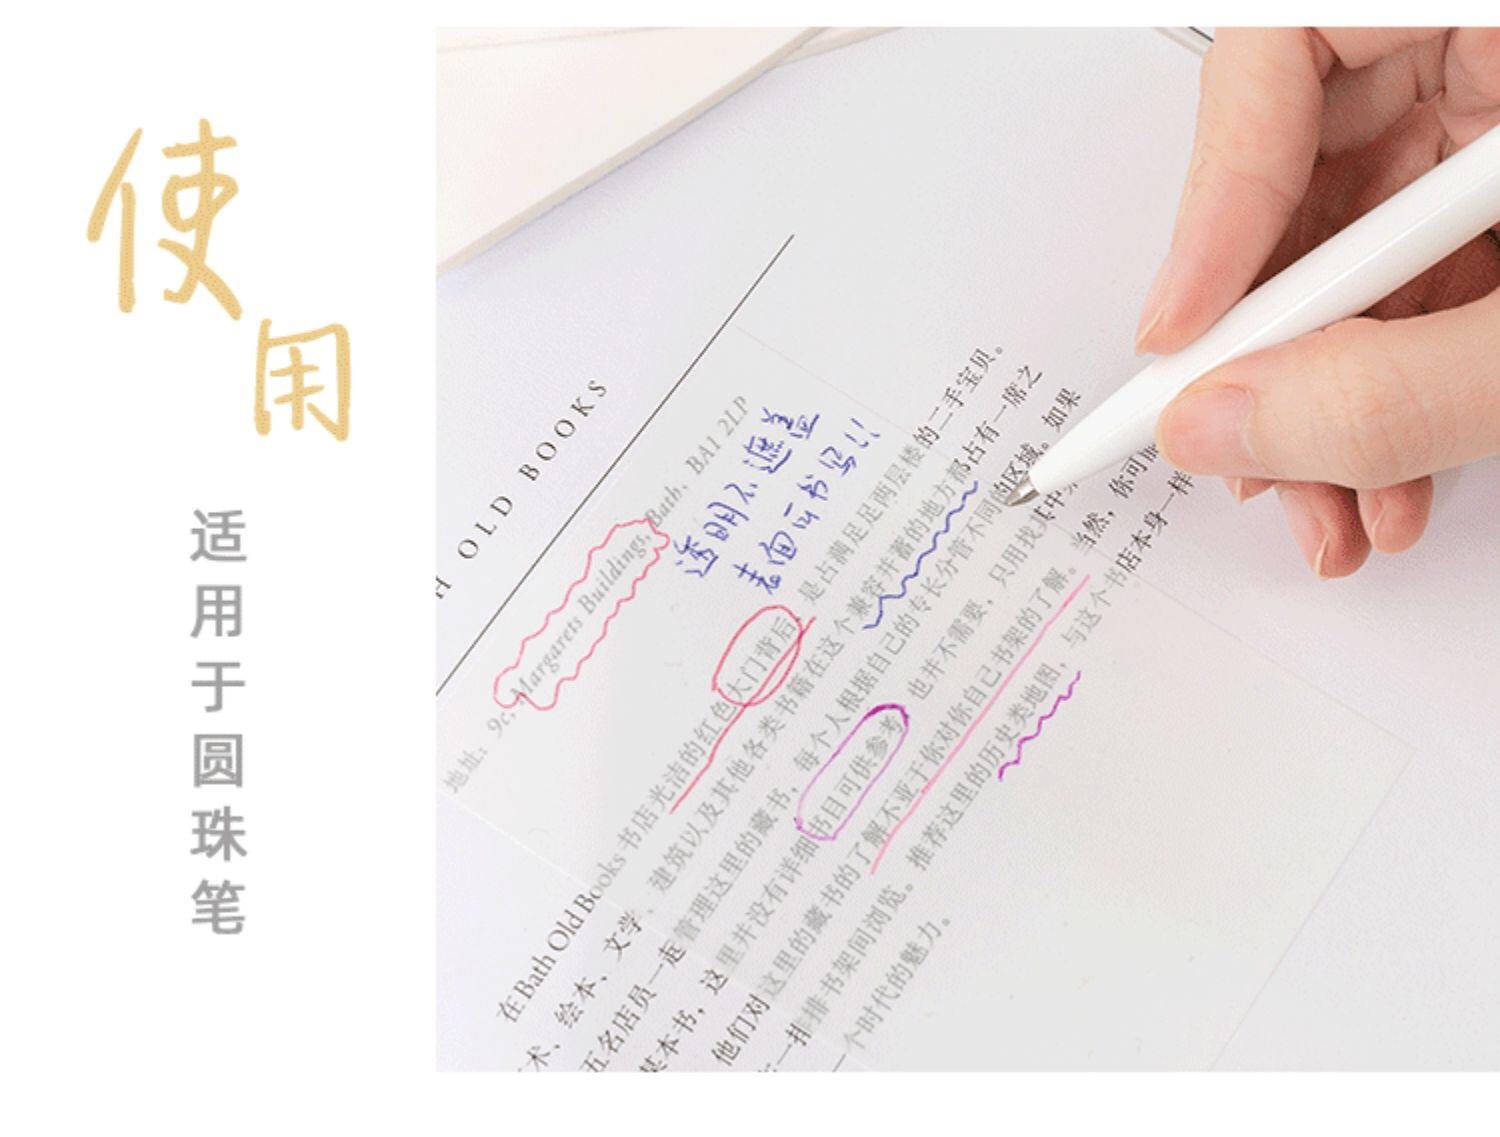 使用
适用于圆珠笔
H OLD BOOKS
地址：9c, Margarets Buildings, Bath, BA1 2LP
透明不遮盖
表面可书写!!
在Bath Old Books 书店光洁的红色大门背后，是占满足足两层楼的二手宝贝。
术、绘本、文学、建筑以及其他各类书籍在这个兼容并蓄的地方都占有一席之
五名店员一起管理这里的藏书，每个人根据自己的专长分管不同的区域。如果
基本书，这里并没有详细书目可供参考，也并不需要，只用找其中
他们对这里的藏书的了解不亚于你对你自己书架的了解。当然，你可
一排排书架间浏览。推荐这里的历史类地图，与这个书店本身一样
一个时代的魅力。